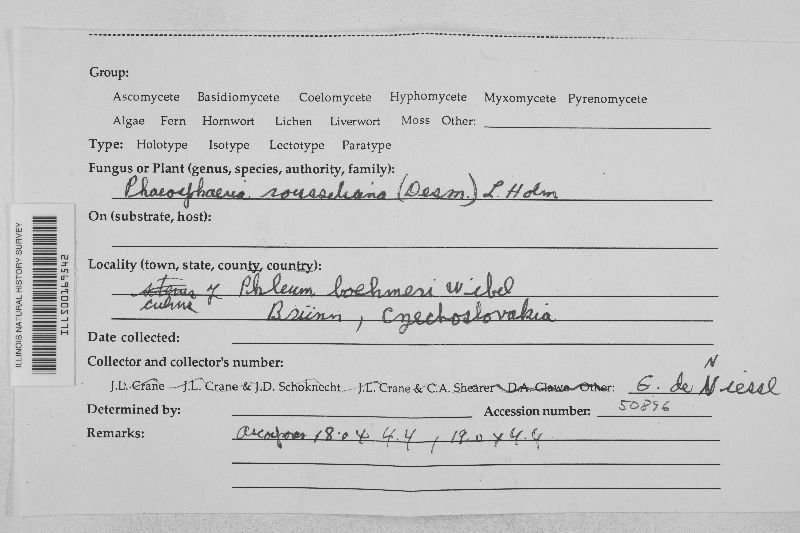 Group:
Ascomycete Basidiomycete Coelomycete Hyphomycete Myxomycete Pyrenomycete
Algae Fern Hornwort Lichen Liverwort Moss Other:
Type: Holotype Isotype Lectotype Paratype
Fungus or Plant (genus, species, authority, family):
Phaeosphaeria rousseliana (Desm.) L. Holm
On (substrate, host):
Locality (town, state, county, country):
stems of Phleum boehmeri Wibel
culms Brünn, Czechoslovakia
Date collected:
Collector and collector's number:
N
J.L. Crane J.L. Crane & J.D. Schoknecht J.L. Crane & C.A. Shearer D.A. Glawe Other: G. de Niessl
Determined by: Accession number: 50896
Remarks: Ascospores 18.0 x 4.4, 19.0 x 4.4
ILLINOIS NATURAL HISTORY SURVEY
ILLS00169542